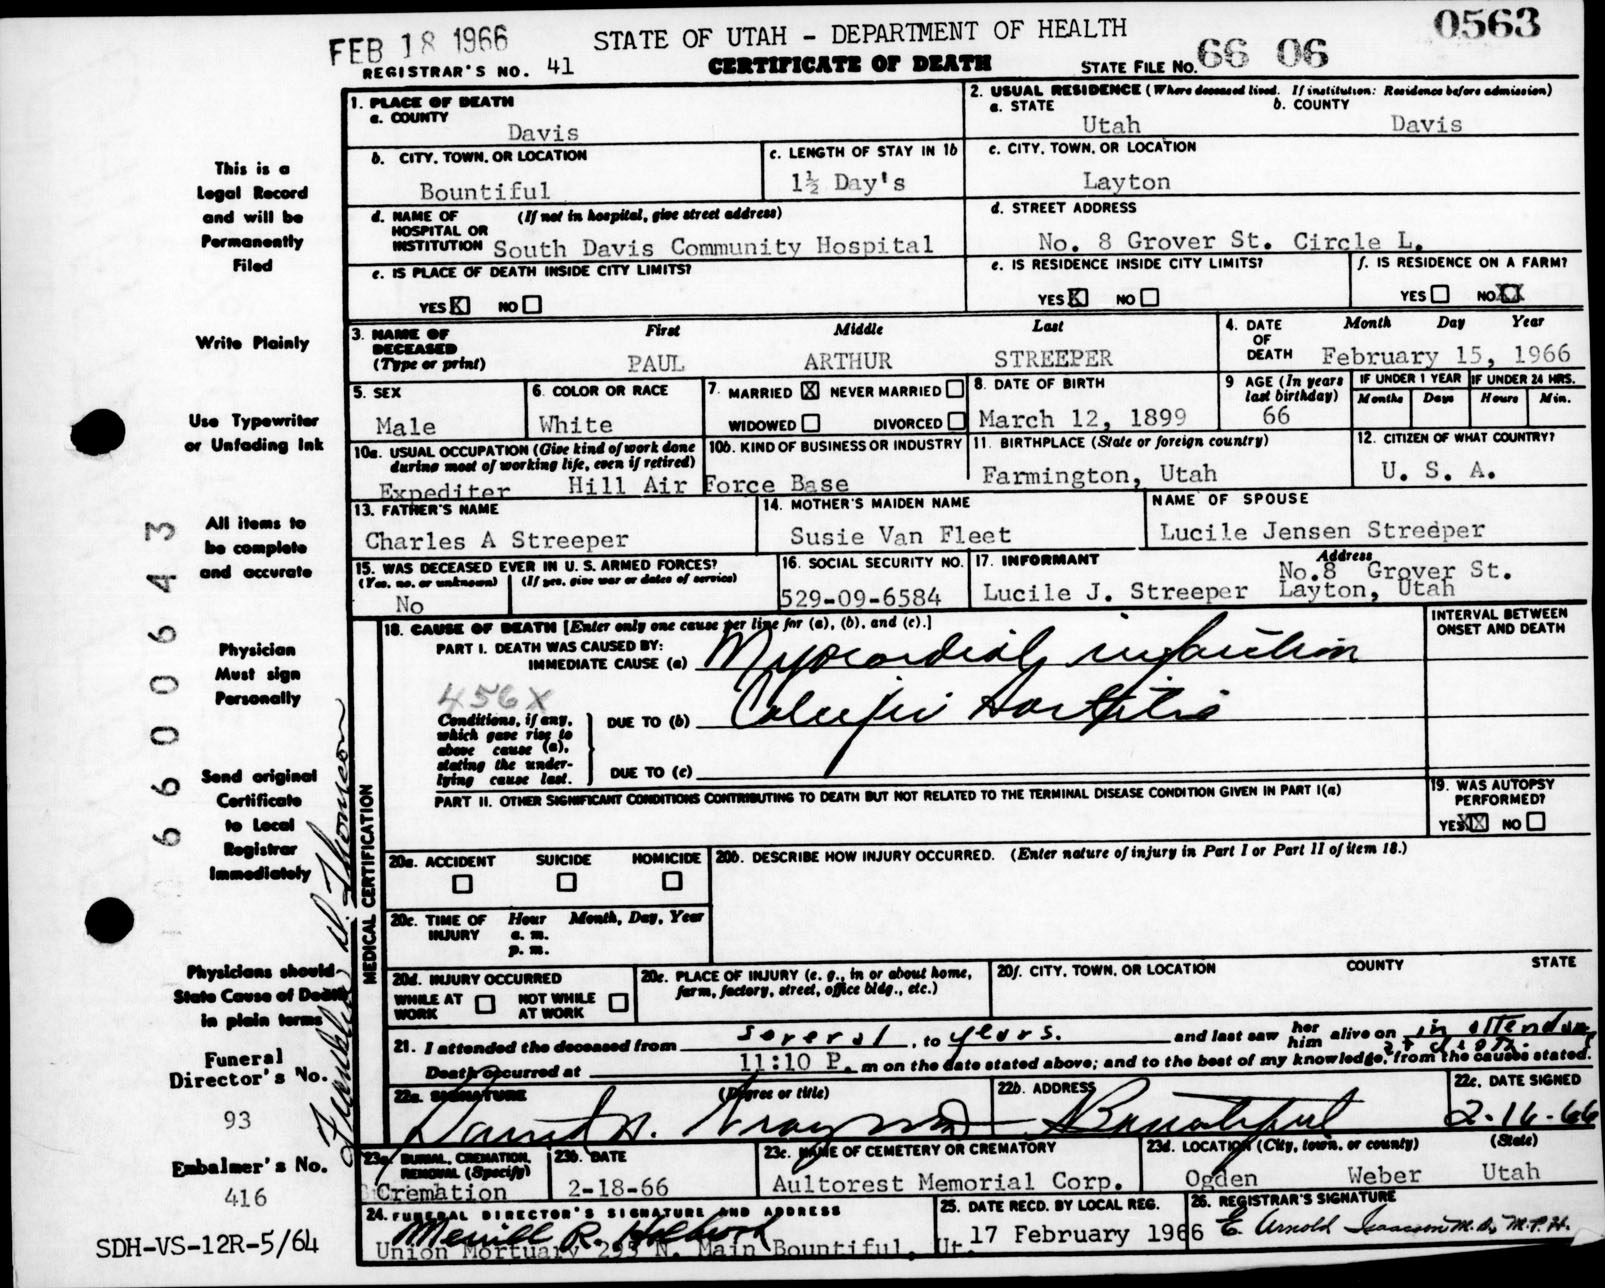 FEB 18 1966
STATE OF UTAH - DEPARTMENT OF HEALTH
0563
REGISTRAR'S NO. 41
CERTIFICATE OF DEATH
STATE FILE NO. 66 06
1. PLACE OF DEATH
a. COUNTY
Davis
2. USUAL RESIDENCE (Where deceased lived. If institution: Residence before admission)
a. STATE
Utah
b. COUNTY
Davis
b. CITY, TOWN, OR LOCATION
Bountiful
c. LENGTH OF STAY IN 1b
1½ Day's
c. CITY, TOWN, OR LOCATION
Layton
d. NAME OF HOSPITAL OR INSTITUTION (If not in hospital, give street address)
South Davis Community Hospital
d. STREET ADDRESS
No. 8 Grover St. Circle L.
e. IS PLACE OF DEATH INSIDE CITY LIMITS?
YES X NO
e. IS RESIDENCE INSIDE CITY LIMITS?
YES X NO
f. IS RESIDENCE ON A FARM?
YES NO XX
3. NAME OF DECEASED (Type or print)
First Middle Last
PAUL ARTHUR STREEPER
4. DATE OF DEATH
Month Day Year
February 15, 1966
5. SEX
Male
6. COLOR OR RACE
White
7. MARRIED X NEVER MARRIED
WIDOWED DIVORCED
8. DATE OF BIRTH
March 12, 1899
9 AGE (In years last birthday)
66
IF UNDER 1 YEAR
Months Days
IF UNDER 24 HRS.
Hours Min.
10a. USUAL OCCUPATION (Give kind of work done during most of working life, even if retired)
Expediter
10b. KIND OF BUSINESS OR INDUSTRY
Hill Air Force Base
11. BIRTHPLACE (State or foreign country)
Farmington, Utah
12. CITIZEN OF WHAT COUNTRY?
U. S. A.
13. FATHER'S NAME
Charles A Streeper
14. MOTHER'S MAIDEN NAME
Susie Van Fleet
NAME OF SPOUSE
Lucile Jensen Streeper
15. WAS DECEASED EVER IN U. S. ARMED FORCES?
(Yes, no, or unknown) (If yes, give war or dates of service)
No
16. SOCIAL SECURITY NO.
529-09-6584
17. INFORMANT Address
Lucile J. Streeper
No.8 Grover St.
Layton, Utah
MEDICAL CERTIFICATION
18. CAUSE OF DEATH [Enter only one cause per line for (a), (b), and (c).]
INTERVAL BETWEEN ONSET AND DEATH
PART I. DEATH WAS CAUSED BY:
IMMEDIATE CAUSE (a) Myocardial infarction
456X
Conditions, if any, which gave rise to above cause (a), stating the underlying cause last.
DUE TO (b)
DUE TO (c)
PART II. OTHER SIGNIFICANT CONDITIONS CONTRIBUTING TO DEATH BUT NOT RELATED TO THE TERMINAL DISEASE CONDITION GIVEN IN PART I(a)
19. WAS AUTOPSY PERFORMED?
YES XX NO
20a. ACCIDENT SUICIDE HOMICIDE
20b. DESCRIBE HOW INJURY OCCURRED. (Enter nature of injury in Part I or Part II of item 18.)
20c. TIME OF INJURY
Hour Month, Day, Year
a. m.
p. m.
20d. INJURY OCCURRED
WHILE AT WORK NOT WHILE AT WORK
20e. PLACE OF INJURY (e. g., in or about home, farm, factory, street, office bldg., etc.)
20f. CITY, TOWN, OR LOCATION COUNTY STATE
21. I attended the deceased from several, to years. and last saw her him alive on in attendance at death.
Death occurred at 11:10 P. m on the date stated above; and to the best of my knowledge, from the causes stated.
22a. SIGNATURE (Degree or title)
22b. ADDRESS
Bountiful
22c. DATE SIGNED
2-16-66
23a. BURIAL, CREMATION, REMOVAL (Specify)
Cremation
23b. DATE
2-18-66
23c. NAME OF CEMETERY OR CREMATORY
Aultorest Memorial Corp.
23d. LOCATION (City, town, or county) (State)
Ogden Weber Utah
24. FUNERAL DIRECTOR'S SIGNATURE AND ADDRESS
Merrill R. Holbrook
Union Mortuary 295 N. Main Bountiful, Ut.
25. DATE RECD. BY LOCAL REG.
17 February 1966
26. REGISTRAR'S SIGNATURE
E. Arnold Isaacson M.D., M.P.H.
This is a
Legal Record
and will be
Permanently
Filed
Write Plainly
Use Typewriter
or Unfading Ink
All items to
be complete
and accurate
Physician
Must sign
Personally
Send original
Certificate
to Local
Registrar
Immediately
Physicians should
State Cause of Death
in plain terms
Funeral
Director's No.
93
Embalmer's No.
416
SDH-VS-12R-5/64
6600643
Franklin D. Thomson